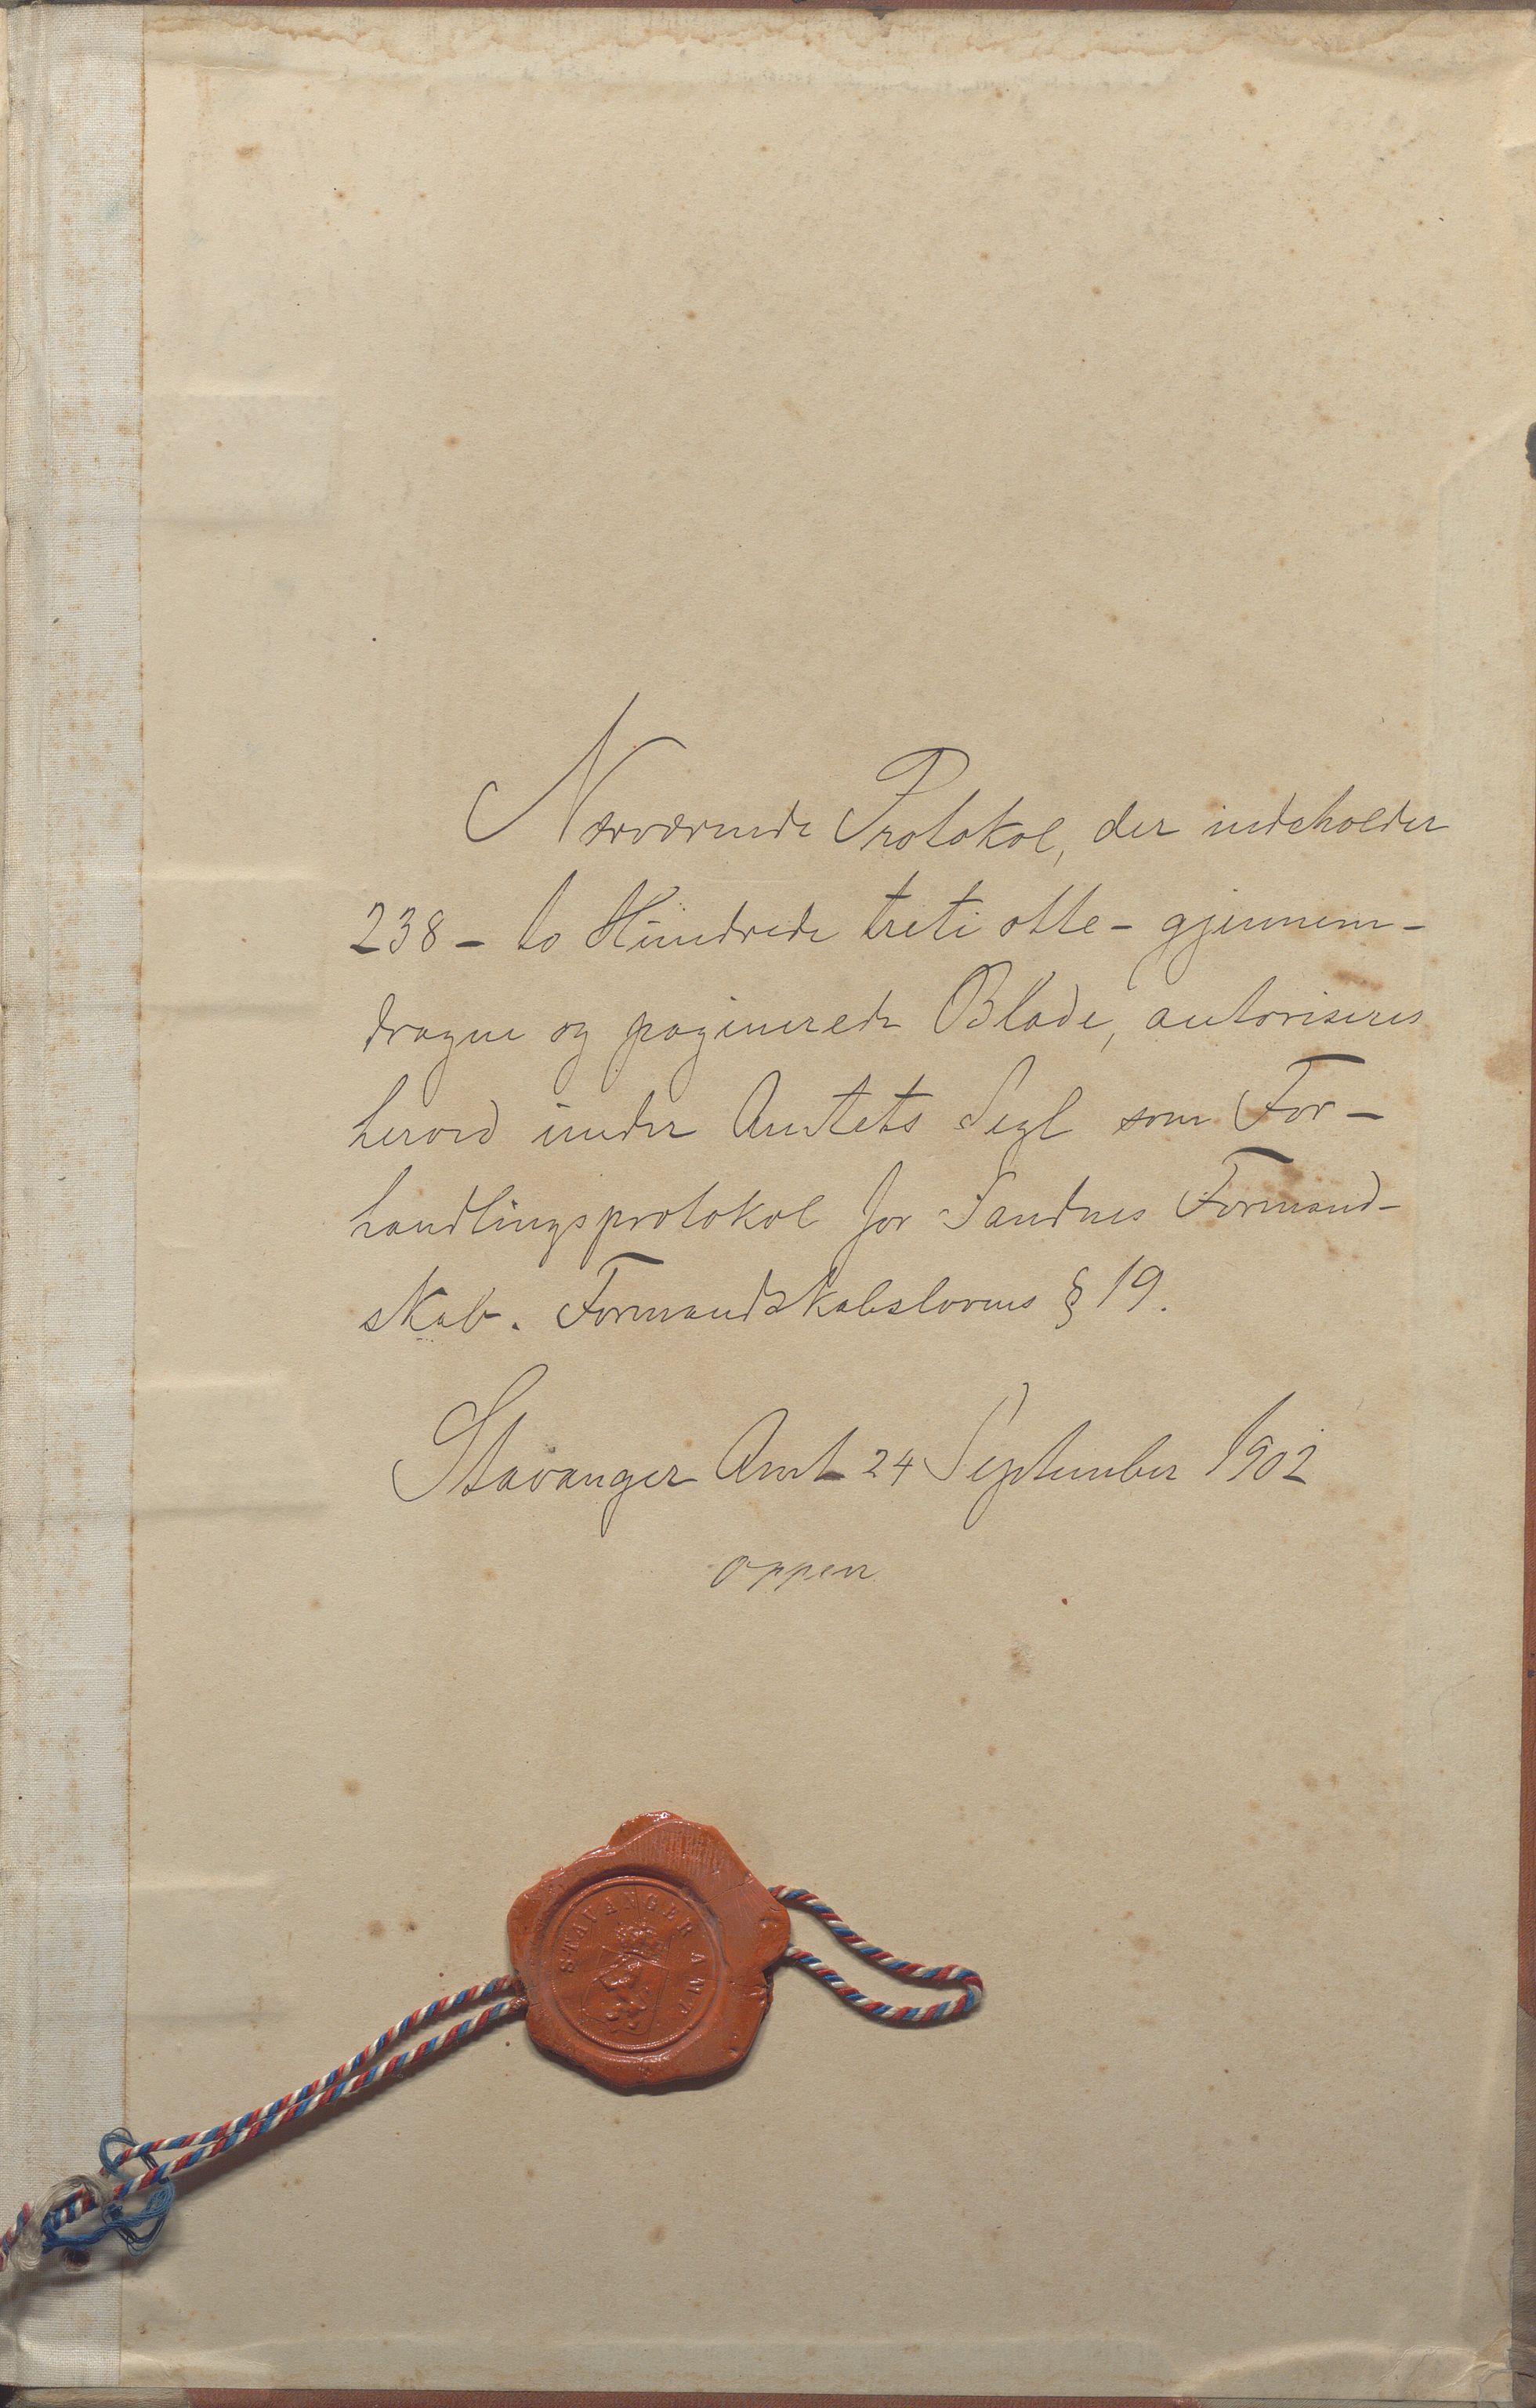 Nærværende Protokol, der indeholder
238 - to Hundrede treti otte - gjennem-
dragne og paginerede Blade, autoriseres
herved under Amtets Segl som For-
handlingsprotokol for Sandnes Formand-
skab. Formandskabslovens § 19.
Stavanger Amt 24 September 1902
Oppen
STAVANGER AMT